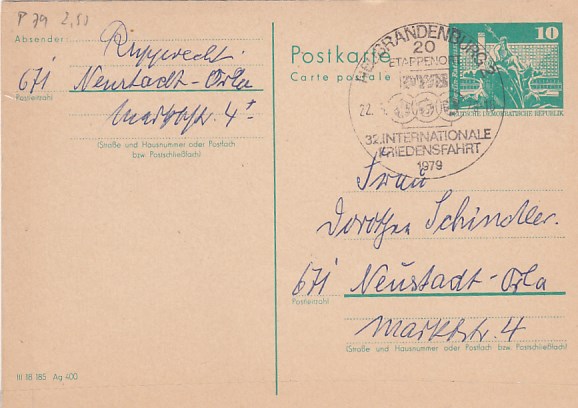 P 79 2,50
Absender:
Rupprecht
671 Neustadt-Orla
Postleitzahl
Marktstr. 4
(Straße und Hausnummer oder Postfach
bzw. Postschließfach)
III 18 185 Ag 400
Postkarte
Carte postale
10
DEUTSCHE DEMOKRATISCHE REPUBLIK
BRANDENBURG
20
ETAPPENORT
22.
32.INTERNATIONALE
FRIEDENSFAHRT
1979
Frau
Dorothea Schindler.
671 Neustadt-Orla
Postleitzahl
Marktstr. 4
(Straße und Hausnummer oder Postfach bzw. Postschließfach)